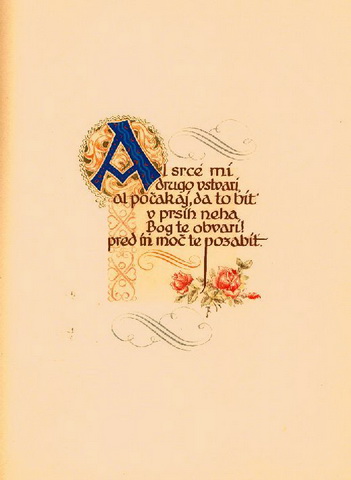 Al srcé mi
drugo vstvari,
al počakaj, da to bit'
v prsih neha,
Bog te obvari!
pred in moč te pozabit.